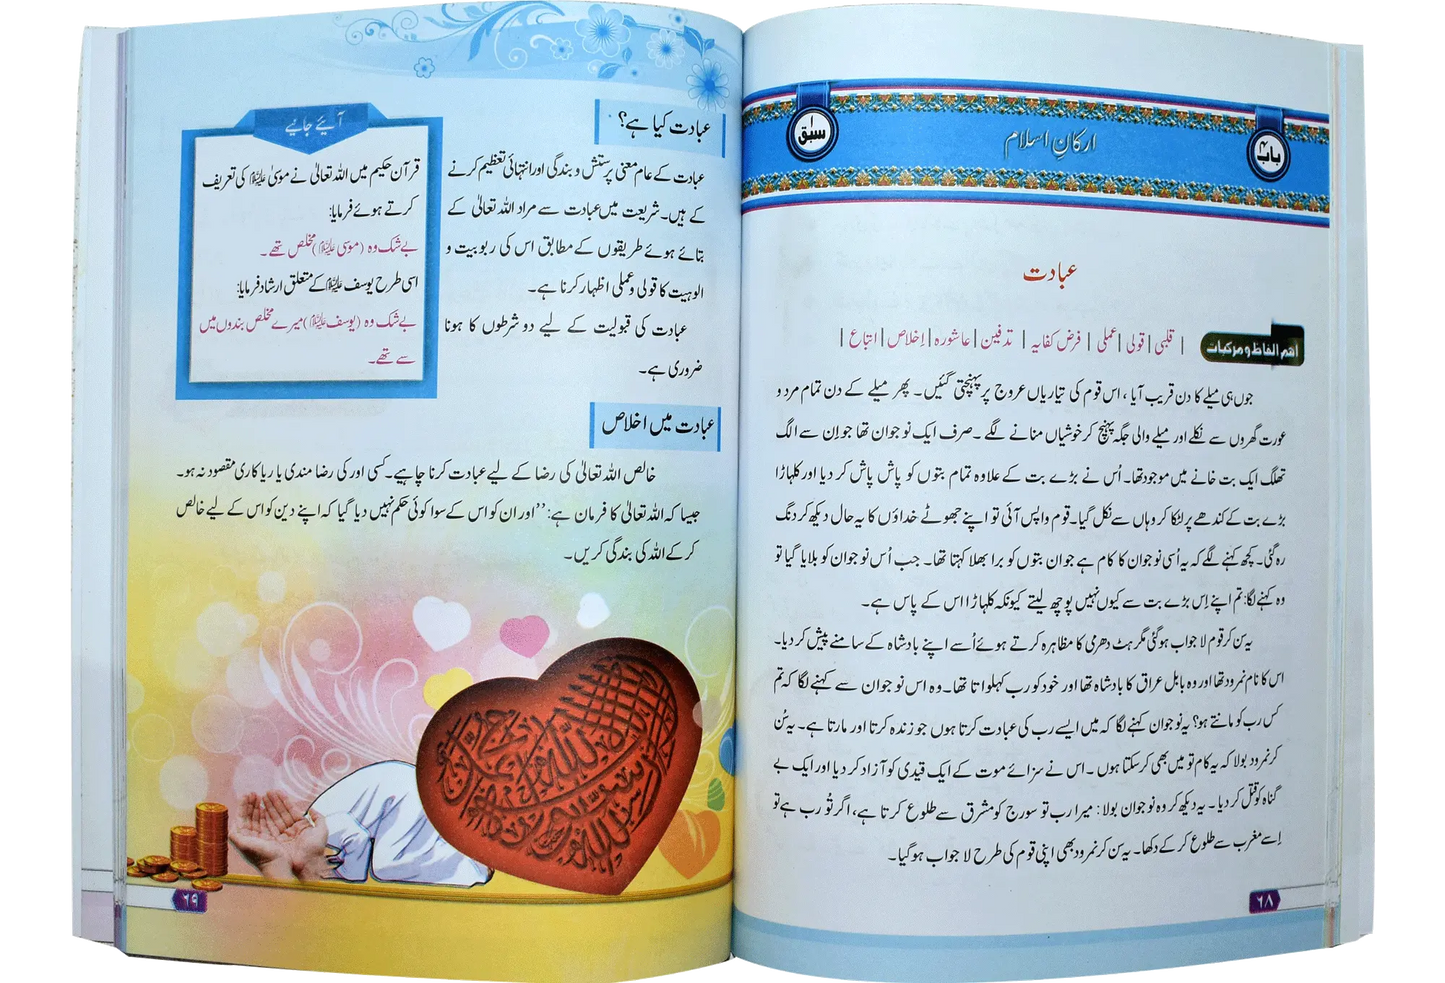 باب ۲
ارکانِ اسلام
سبق ۱
عبادت
اہم الفاظ و مرکبات
| قلبی | قولی | عملی | فرض کفایہ | تدفین | عاشورہ | اخلاص | اتباع |
جوں ہی میلے کا دن قریب آیا، اس قوم کی تیاریاں عروج پر پہنچتی گئیں۔ پھر میلے کے دن تمام مرد و
عورت گھروں سے نکلے اور میلے والی جگہ پہنچ کر خوشیاں منانے لگے۔ صرف ایک نوجوان تھا جو اِن سے الگ
تھلگ ایک بت خانے میں موجود تھا۔ اُس نے بڑے بت کے علاوہ تمام بتوں کو پاش پاش کر دیا اور کلہاڑا
بڑے بت کے کندھے پر لٹکا کر وہاں سے نکل گیا۔ قوم واپس آئی تو اپنے جھوٹے خداؤں کا یہ حال دیکھ کر دنگ
رہ گئی۔ کچھ کہنے لگے کہ یہ اُسی نوجوان کا کام ہے جو ان بتوں کو برا بھلا کہتا تھا۔ جب اُس نوجوان کو بلایا گیا تو
وہ کہنے لگا: تم اپنے اِس بڑے بت سے کیوں نہیں پوچھ لیتے کیونکہ کلہاڑا اس کے پاس ہے۔
یہ سن کر قوم لا جواب ہوگئی مگر ہٹ دھرمی کا مظاہرہ کرتے ہوئے اُسے اپنے بادشاہ کے سامنے پیش کر دیا۔
اس کا نام نمرود تھا اور وہ بابل عراق کا بادشاہ تھا اور خود کو رب کہلواتا تھا۔ وہ اس نوجوان سے کہنے لگا کہ تم
کس رب کو مانتے ہو؟ یہ نوجوان کہنے لگا کہ میں ایسے رب کی عبادت کرتا ہوں جو زندہ کرتا اور مارتا ہے۔ یہ سُن
کر نمرود بولا کہ یہ کام تو میں بھی کر سکتا ہوں۔ اس نے سزائے موت کے ایک قیدی کو آزاد کر دیا اور ایک بے
گناہ کو قتل کر دیا۔ یہ دیکھ کر وہ نوجوان بولا: میرا رب تو سورج کو مشرق سے طلوع کرتا ہے، اگر تُو رب ہے تو
اِسے مغرب سے طلوع کر کے دکھا۔ یہ سن کر نمرود بھی اپنی قوم کی طرح لا جواب ہوگیا۔
۶۸
عبادت کیا ہے؟
عبادت کے عام معنی پرستش و بندگی اور انتہائی تعظیم کرنے
کے ہیں۔ شریعت میں عبادت سے مراد اللہ تعالیٰ کے
بتائے ہوئے طریقوں کے مطابق اس کی ربوبیت و
الوہیت کا قولی و عملی اظہار کرنا ہے۔
عبادت کی قبولیت کے لیے دو شرطوں کا ہونا
ضروری ہے۔
آئیے جانیے
قرآن حکیم میں اللہ تعالیٰ نے موسیٰ علیہ السلام کی تعریف
کرتے ہوئے فرمایا:
بے شک وہ (موسیٰ علیہ السلام) مخلص تھے۔
اسی طرح یوسف علیہ السلام کے متعلق ارشاد فرمایا:
بے شک وہ (یوسف علیہ السلام) میرے مخلص بندوں میں
سے تھے۔
عبادت میں اخلاص
خالص اللہ تعالیٰ کی رضا کے لیے عبادت کرنا چاہیے۔ کسی اور کی رضا مندی یا ریا کاری مقصود نہ ہو۔
جیسا کہ اللہ تعالیٰ کا فرمان ہے: ’’اور ان کو اس کے سوا کوئی حکم نہیں دیا گیا کہ اپنے دین کو اس کے لیے خالص
کر کے اللہ کی بندگی کریں۔
۶۹